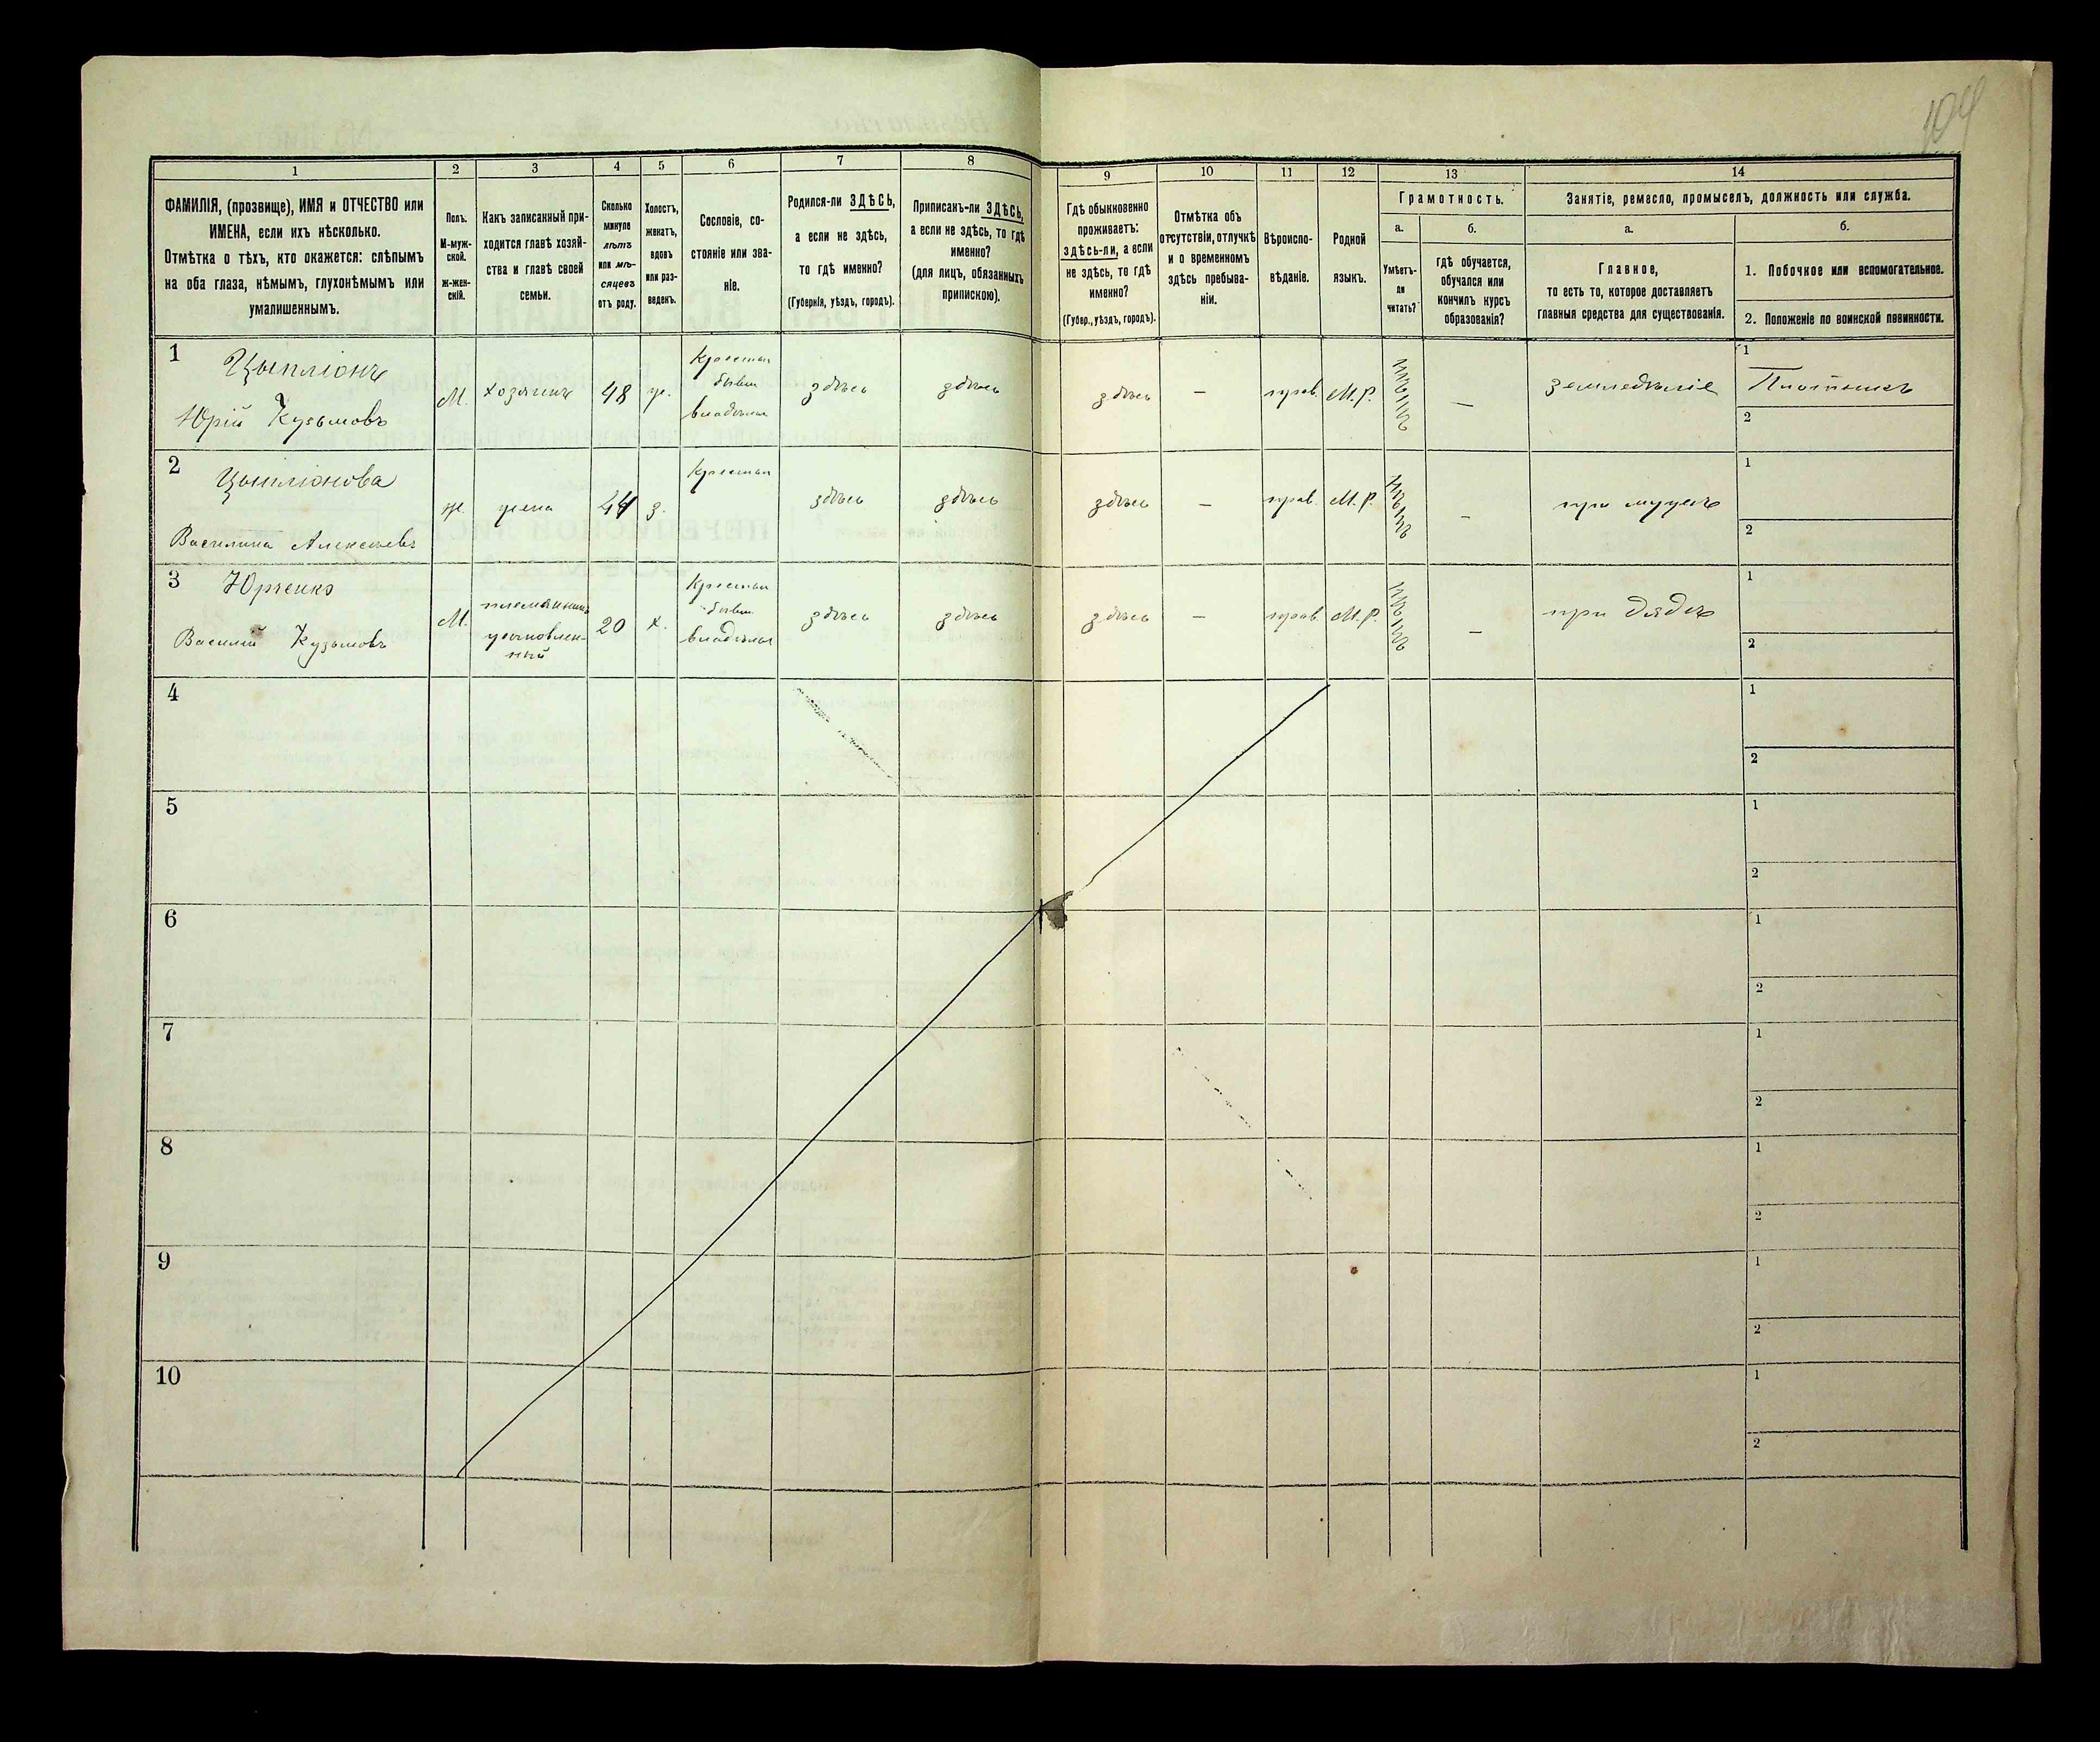 104
1 2 3 4 5 6 7 8 9 10 11 12 13 14
ФАМИЛІЯ, (прозвище), ИМЯ и ОТЧЕСТВО или
ИМЕНА, если ихъ нѣсколько.
Отмѣтка о тѣхъ, кто окажется: слѣпымъ
на оба глаза, нѣмымъ, глухонѣмымъ или
умалишеннымъ.
Полъ.
М-муж-
ской.
Ж-жен-
скій.
Какъ записанный при-
ходится главѣ хозяй-
ства и главѣ своей
семьи.
Сколько
минуло
лѣтъ
или мѣ-
сяцевъ
отъ роду.
Холостъ,
женатъ,
вдовъ
или раз-
веденъ.
Сословіе, со-
стояніе или зва-
ніе.
Родился-ли ЗДѢСЬ,
а если не здѣсь,
то гдѣ именно?
(Губернія, уѣздъ, городъ).
Приписанъ-ли ЗДѢСЬ,
а если не здѣсь, то гдѣ
именно?
(для лицъ, обязанныхъ
припискою).
Гдѣ обыкновенно
проживаетъ:
здѣсь-ли, а если
не здѣсь, то гдѣ
именно?
(Губер., уѣздъ, городъ).
Отмѣтка объ
отсутствіи, отлучкѣ
и о временномъ
здѣсь пребыва-
ніи.
Вѣроиспо-
вѣданіе.
Родной
языкъ.
Грамотность.
а.
Умѣетъ-
ли
читать?
б.
гдѣ обучается,
обучался или
кончилъ курсъ
образованія?
Занятіе, ремесло, промыселъ, должность или служба.
а.
Главное,
то есть то, которое доставляетъ
главныя средства для существованія.
б.
1. Побочное или вспомогательное.
2. Положеніе по воинской повинности.
1
Цыпліонъ
Юрій Кузьмовъ
М.
хозяинъ
48
ж.
Крестьян
бывш
владѣльч
здѣсь
здѣсь
здѣсь
—
прав.
М.Р.
нѣтъ
—
земледѣліе
1
Плотникъ
2
2
Цыпліонова
Василина Алексѣевъ
ж.
жена
44
з.
Крестьян
здѣсь
здѣсь
здѣсь
—
прав.
М.Р.
нѣтъ
—
при мужѣ
1
2
3
Юрченко
Василій Кузьмовъ
М.
племянникъ
усыновлен-
ный
20
х.
Крестьян
бывш
владѣльч
здѣсь
здѣсь
здѣсь
—
прав.
М.Р.
нѣтъ
—
при дядѣ
1
2
4
1
2
5
1
2
6
1
2
7
1
2
8
1
2
9
1
2
10
1
2